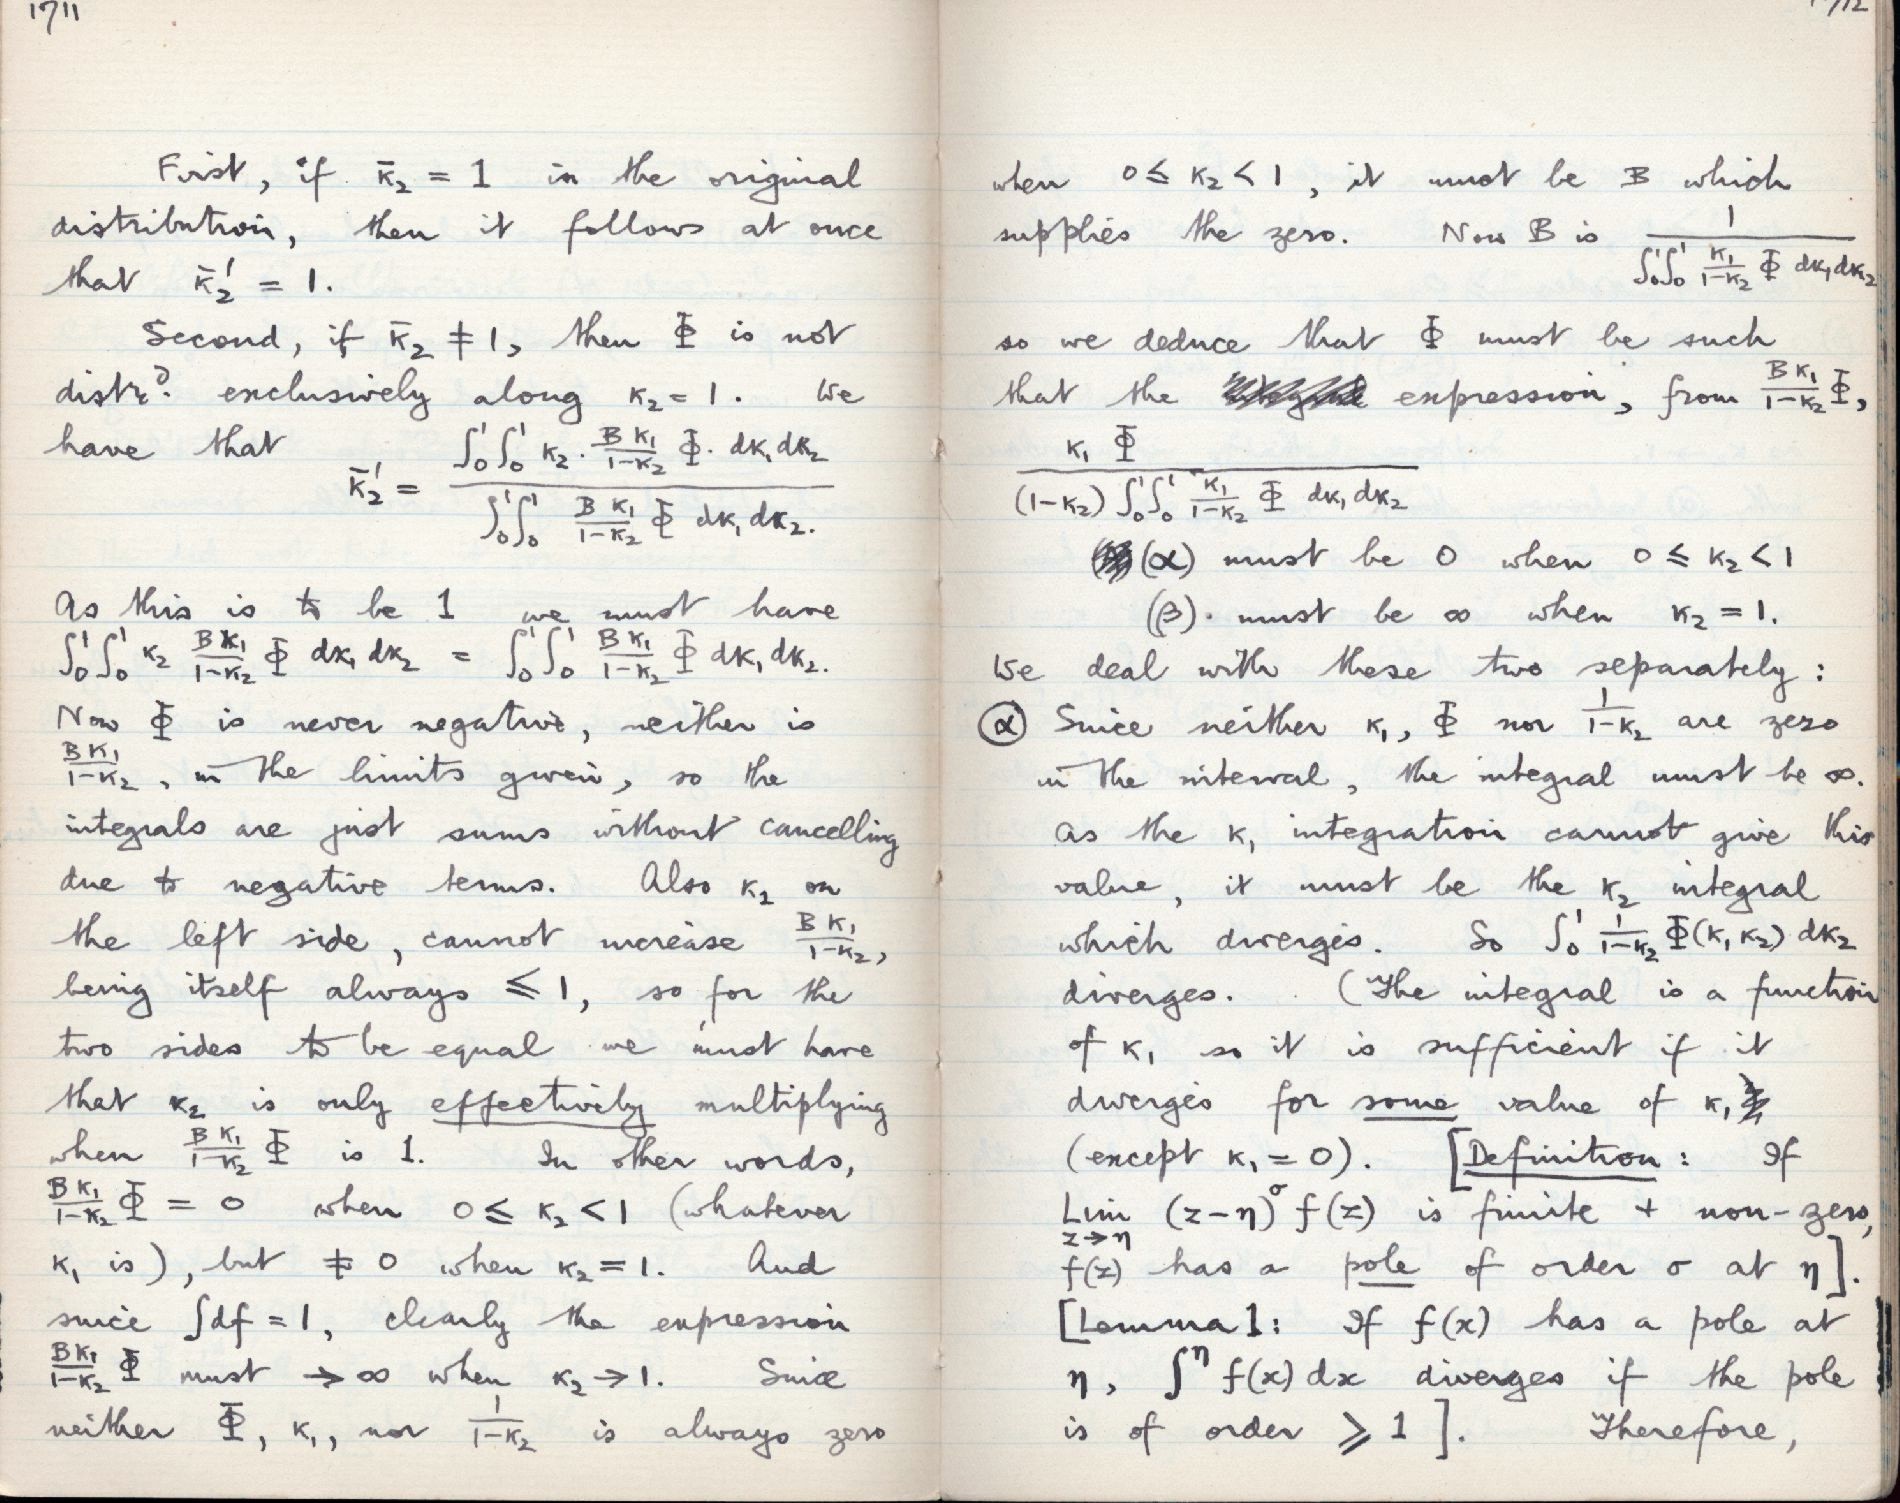 1711
First, if κ̄₂ = 1 in the original
distribution, then it follows at once
that κ̄₂' = 1.
Second, if κ̄₂ ≠ 1, then Φ is not
distrᵈ. exclusively along κ₂ = 1. We
have that
κ̄₂' = ∫₀¹∫₀¹ κ₂ · (B κ₁)/(1−κ₂) Φ · dκ₁ dκ₂ / ∫₀¹∫₀¹ (B κ₁)/(1−κ₂) Φ dκ₁ dκ₂.
As this is to be 1 we must have
∫₀¹∫₀¹ κ₂ (B κ₁)/(1−κ₂) Φ dκ₁ dκ₂ = ∫₀¹∫₀¹ (B κ₁)/(1−κ₂) Φ dκ₁ dκ₂.
Now Φ is never negative, neither is
(B κ₁)/(1−κ₂), in the limits given, so the
integrals are just sums without cancelling
due to negative terms. Also κ₂ on
the left side, cannot increase (B κ₁)/(1−κ₂),
being itself always ≤ 1, so for the
two sides to be equal we must have
that κ₂ is only effectively multiplying
when (B κ₁)/(1−κ₂) Φ is 1. In other words,
(B κ₁)/(1−κ₂) Φ = 0 when 0 ≤ κ₂ < 1 (whatever
κ₁ is), but ≠ 0 when κ₂ = 1. And
since ∫df = 1, clearly the expression
(B κ₁)/(1−κ₂) Φ must → ∞ when κ₂ → 1. Since
neither Φ, κ₁, nor 1/(1−κ₂) is always zero
1712
when 0 ≤ κ₂ < 1, it must be B which
supplies the zero. Now B is 1 / ∫₀¹∫₀¹ κ₁/(1−κ₂) Φ dκ₁ dκ₂
so we deduce that Φ must be such
that the expression, from (B κ₁)/(1−κ₂) Φ,
κ₁ Φ / (1−κ₂) ∫₀¹∫₀¹ κ₁/(1−κ₂) Φ dκ₁ dκ₂
(α) must be 0 when 0 ≤ κ₂ < 1
(β). must be ∞ when κ₂ = 1.
We deal with these two separately :
(α) Since neither κ₁, Φ nor 1/(1−κ₂) are zero
in the interval, the integral must be ∞.
As the κ₁ integration cannot give this
value, it must be the κ₂ integral
which diverges. So ∫₀¹ 1/(1−κ₂) Φ(κ₁ κ₂) dκ₂
diverges. (The integral is a function
of κ₁ so it is sufficient if it
diverges for some value of κ₁
(except κ₁ = 0). [Definition : If
Lim z→η (z−η)^σ f(z) is finite + non-zero,
f(z) has a pole of order σ at η].
[Lemma 1: If f(x) has a pole at
η, ∫^η f(x) dx diverges if the pole
is of order ⩾ 1 ]. Therefore,